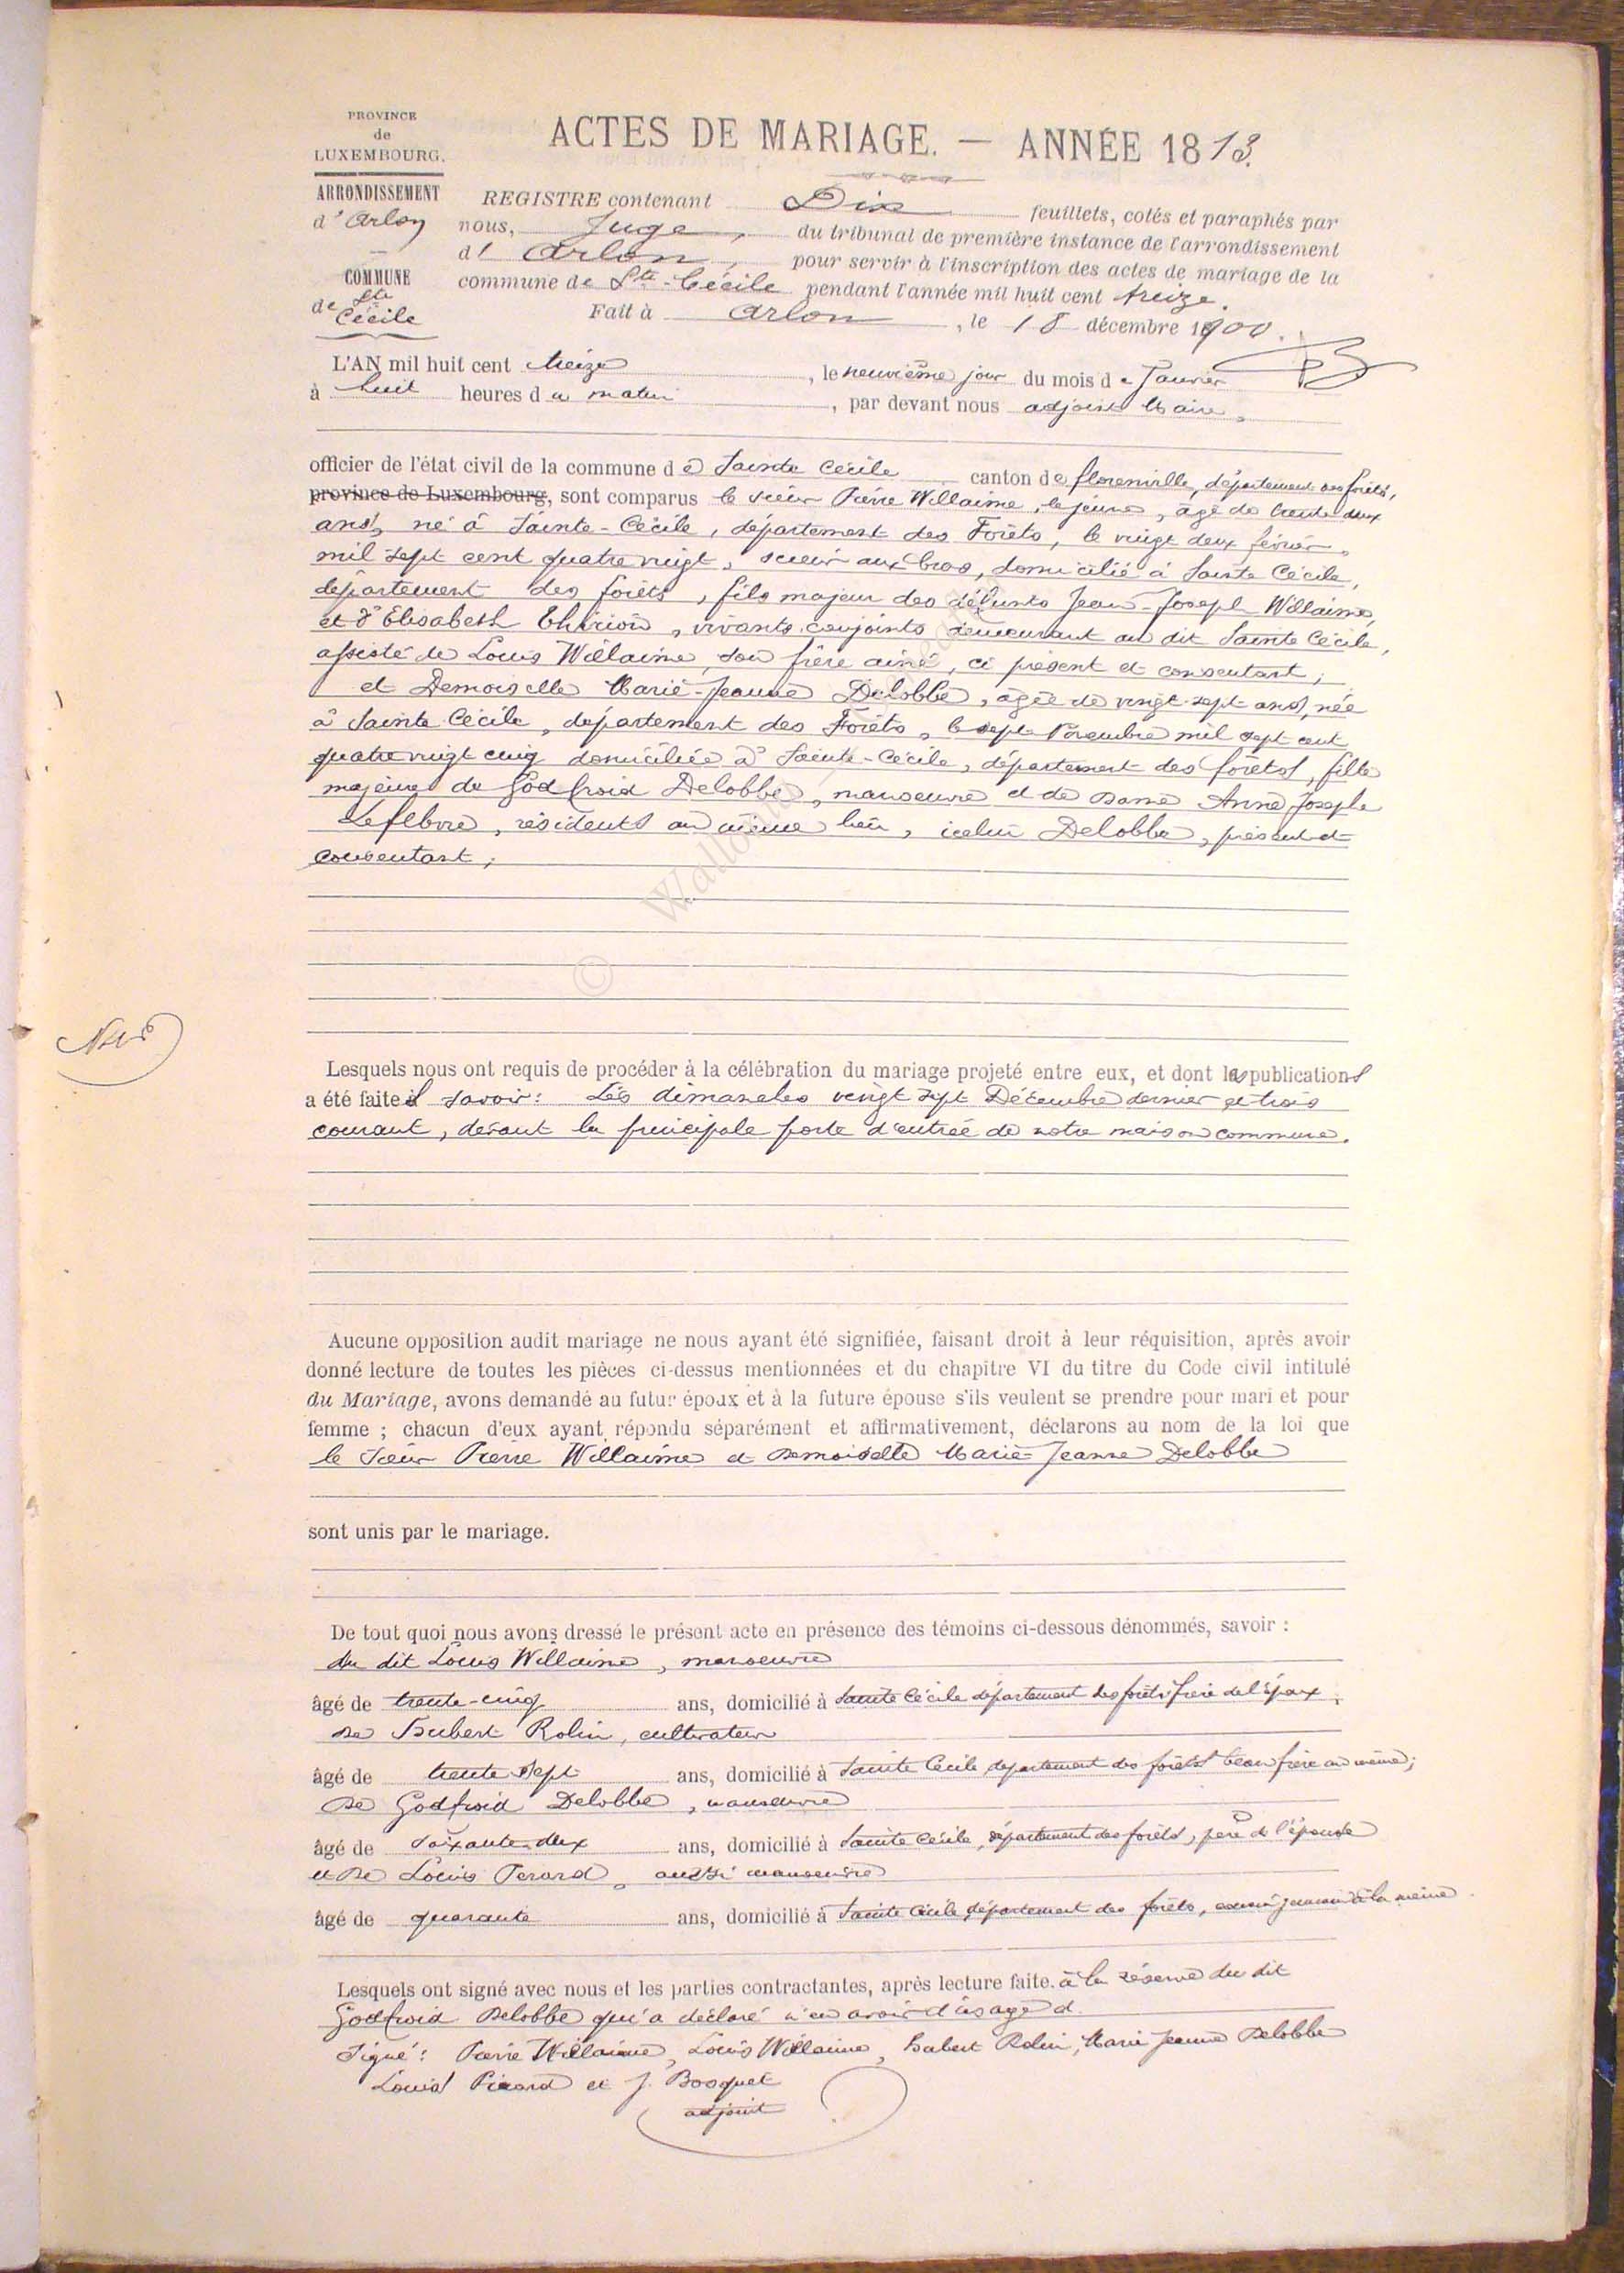 PROVINCE
de
LUXEMBOURG.
ARRONDISSEMENT
d'Arlon
COMMUNE
de Ste
Cécile
ACTES DE MARIAGE. — ANNÉE 1813.
REGISTRE contenant Dix feuillets, cotés et paraphés par
nous, Juge, du tribunal de première instance de l'arrondissement
d' Arlon, pour servir à l'inscription des actes de mariage de la
commune de Ste-Cécile pendant l'année mil huit cent treize.
Fait à Arlon, le 18 décembre 1900.
L'AN mil huit cent treize, le neuvième jour du mois de Janvier
à huit heures du matin, par devant nous adjoint Maire,
officier de l'état civil de la commune de Sainte Cécile canton de florenville, département des forêts,
province de Luxembourg, sont comparus le sieur Pierre Willaime, le jeune, âgé de trente deux
ans, né à Sainte-Cécile, département des Forêts, le vingt deux février
mil sept cent quatre vingt, scieur aux bras, domicilié à Sainte Cécile,
département des forêts, fils majeur des défunts Jean-Joseph Willaime,
et d'Elisabeth Thirion, vivants conjoints demeurant au dit Sainte Cécile,
assisté de Louis Willaime, son frère ainé, ci présent et consentant;
et Demoiselle Marie-Jeanne Delobbe, âgée de vingt-sept ans, née
à Sainte Cécile, département des Forêts, le sept Novembre mil sept cent
quatre vingt cinq domiciliée à Sainte-Cécile, département des forêts, fille
majeure de Godfroid Delobbe, manoeuvre et de Dame Anne Josephe
Lefebvre, résidents au même lieu, icelui Delobbe, présent et
consentant;
© Wallonie
Lesquels nous ont requis de procéder à la célébration du mariage projeté entre eux, et dont les publications
a été faites savoir: Les dimanches vingt sept Décembre dernier et trois
courant, devant la principale porte d'entrée de notre maison commune.
Aucune opposition audit mariage ne nous ayant été signifiée, faisant droit à leur réquisition, après avoir
donné lecture de toutes les pièces ci-dessus mentionnées et du chapitre VI du titre du Code civil intitulé
du Mariage, avons demandé au futur époux et à la future épouse s'ils veulent se prendre pour mari et pour
femme ; chacun d'eux ayant répondu séparément et affirmativement, déclarons au nom de la loi que
le Sieur Pierre Willaime et Demoiselle Marie-Jeanne Delobbe
sont unis par le mariage.
De tout quoi nous avons dressé le présent acte en présence des témoins ci-dessous dénommés, savoir :
du dit Louis Willaime, manoeuvre
âgé de trente-cinq ans, domicilié à Sainte Cécile département des forêts frère de l'époux,
De Hubert Rolin, cultivateur
âgé de trente sept ans, domicilié à Sainte Cécile, département des forêts beau frère au même;
De Godfroid Delobbe, manoeuvre
âgé de soixante-deux ans, domicilié à Sainte Cécile, département des forêts, père de l'épouse
et De Louis Perard, aussi manoeuvre
âgé de quarante ans, domicilié à Sainte Cécile, département des forêts, cousin germain à la même
Lesquels ont signé avec nous et les parties contractantes, après lecture faite. à la réserve du dit
Godfroid Delobbe qui a déclaré n'en avoir d'usage.
Signé: Pierre Willaime, Louis Willaime, Hubert Rolin, Marie Jeanne Delobbe
Louis Pirard et J. Bosquet
adjoint